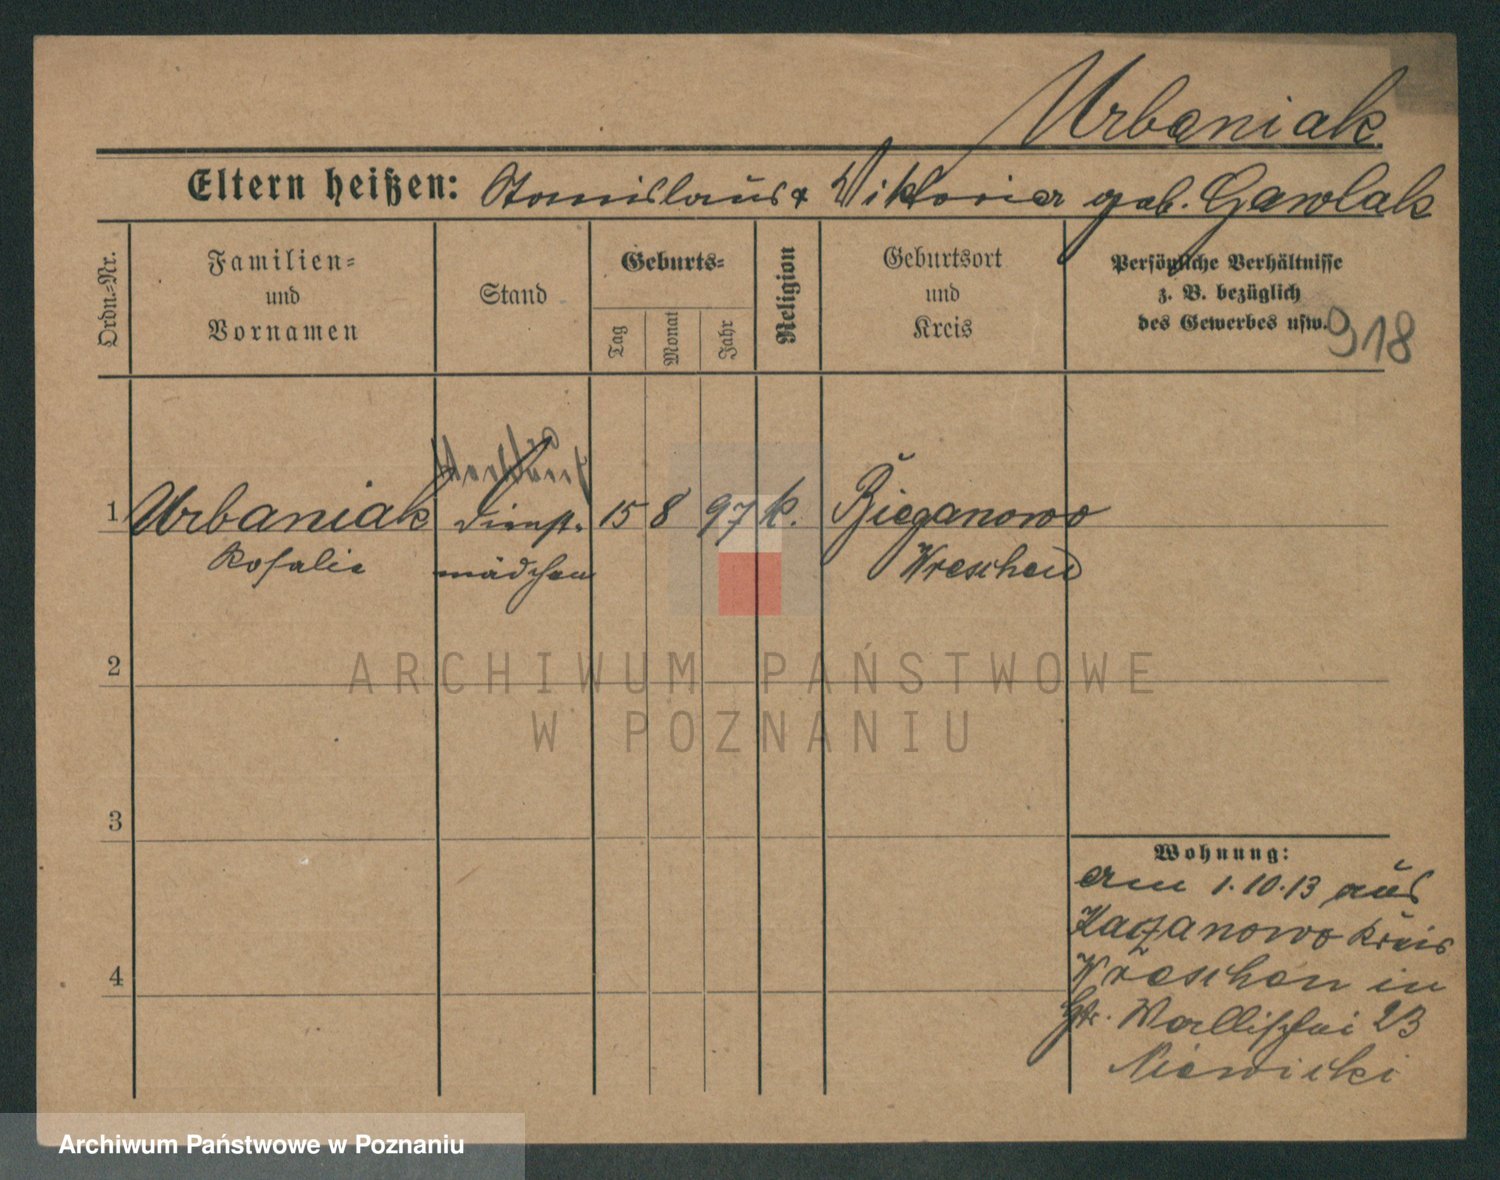 Urbaniak
Eltern heißen: Stanislaus & Viktoria geb. Gawlak
Ordn.-Nr.
Familien-
und
Vornamen
Stand
Geburts-
Tag
Monat
Jahr
Religion
Geburtsort
und
Kreis
Persönliche Verhältnisse
z. B. bezüglich
des Gewerbes usw.
918
1 Urbaniak Dienst- 15 8 97 k. Bieganowo
Rosalie mädchen Wreschen
2
3
4
Wohnung:
am 1.10.13 aus
Kaczanowo Kreis
Wreschen in
Gr. Wallischei 23
ARCHIWUM PAŃSTWOWE
W POZNANIU
Archiwum Państwowe w Poznaniu